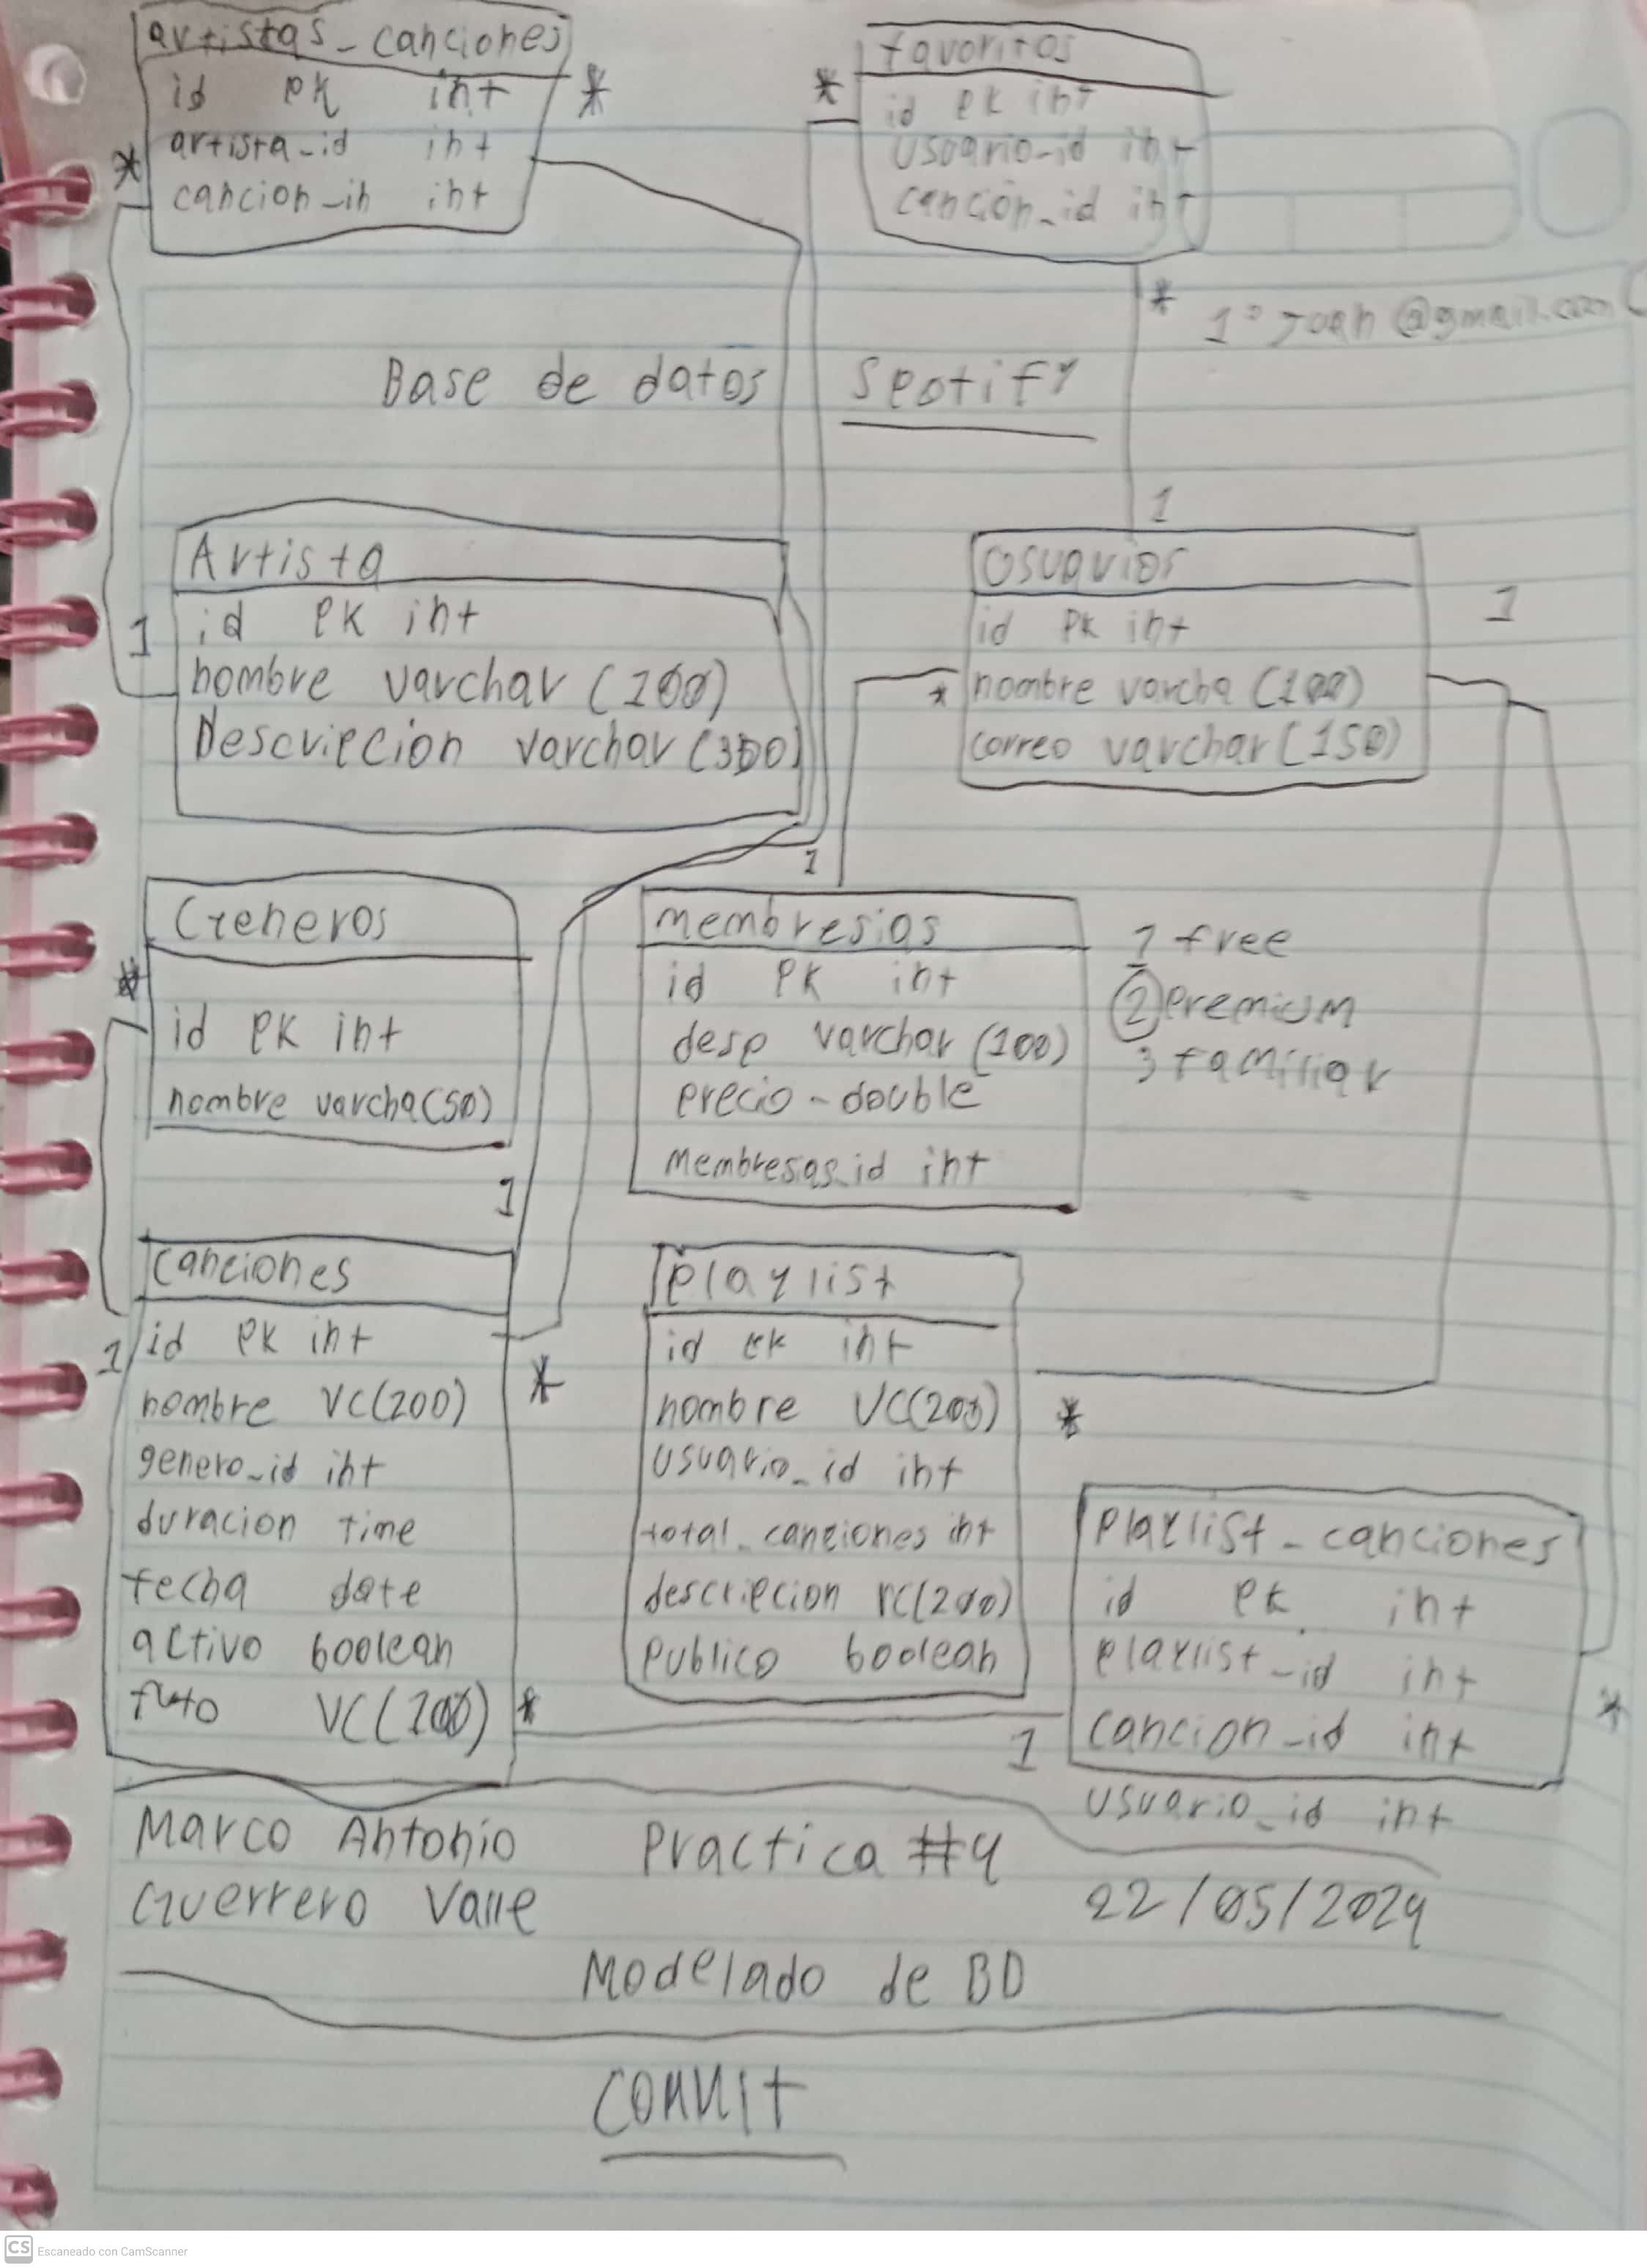 artistas_canciones
id PK int
artista_id int
cancion_in int
*
*
favoritos
id PK int
usuario_id int
canción_id int
*
*
1° Juan @gmail.com
Base de datos Spotify
Artista
id PK int
nombre varchar (100)
Descripcion varchar (300)
1
1
Usuarios
id PK int
nombre varcha (100)
correo varchar (150)
1
*
Generos
id PK int
nombre varcha(50)
*
1
1
membresias
id PK int
desp varchar (100)
precio - double
membresas_id int
1 free
2 Premium
3 familiar
canciones
id PK int
nombre VC(200)
genero_id int
duracion time
fecha date
activo boolean
VC(100)
1
*
*
Playlist
id PK int
nombre VC(200)
usuario_id int
total_canciones int
descripcion VC(200)
Publico boolean
*
1
Playlist_canciones
id PK int
Playlist_id int
cancion_id int
usuario_id int
*
Marco Antonio Practica #4
Guerrero Valle 22/05/2024
Modelado de BD
COMMIT
CS Escaneado con CamScanner